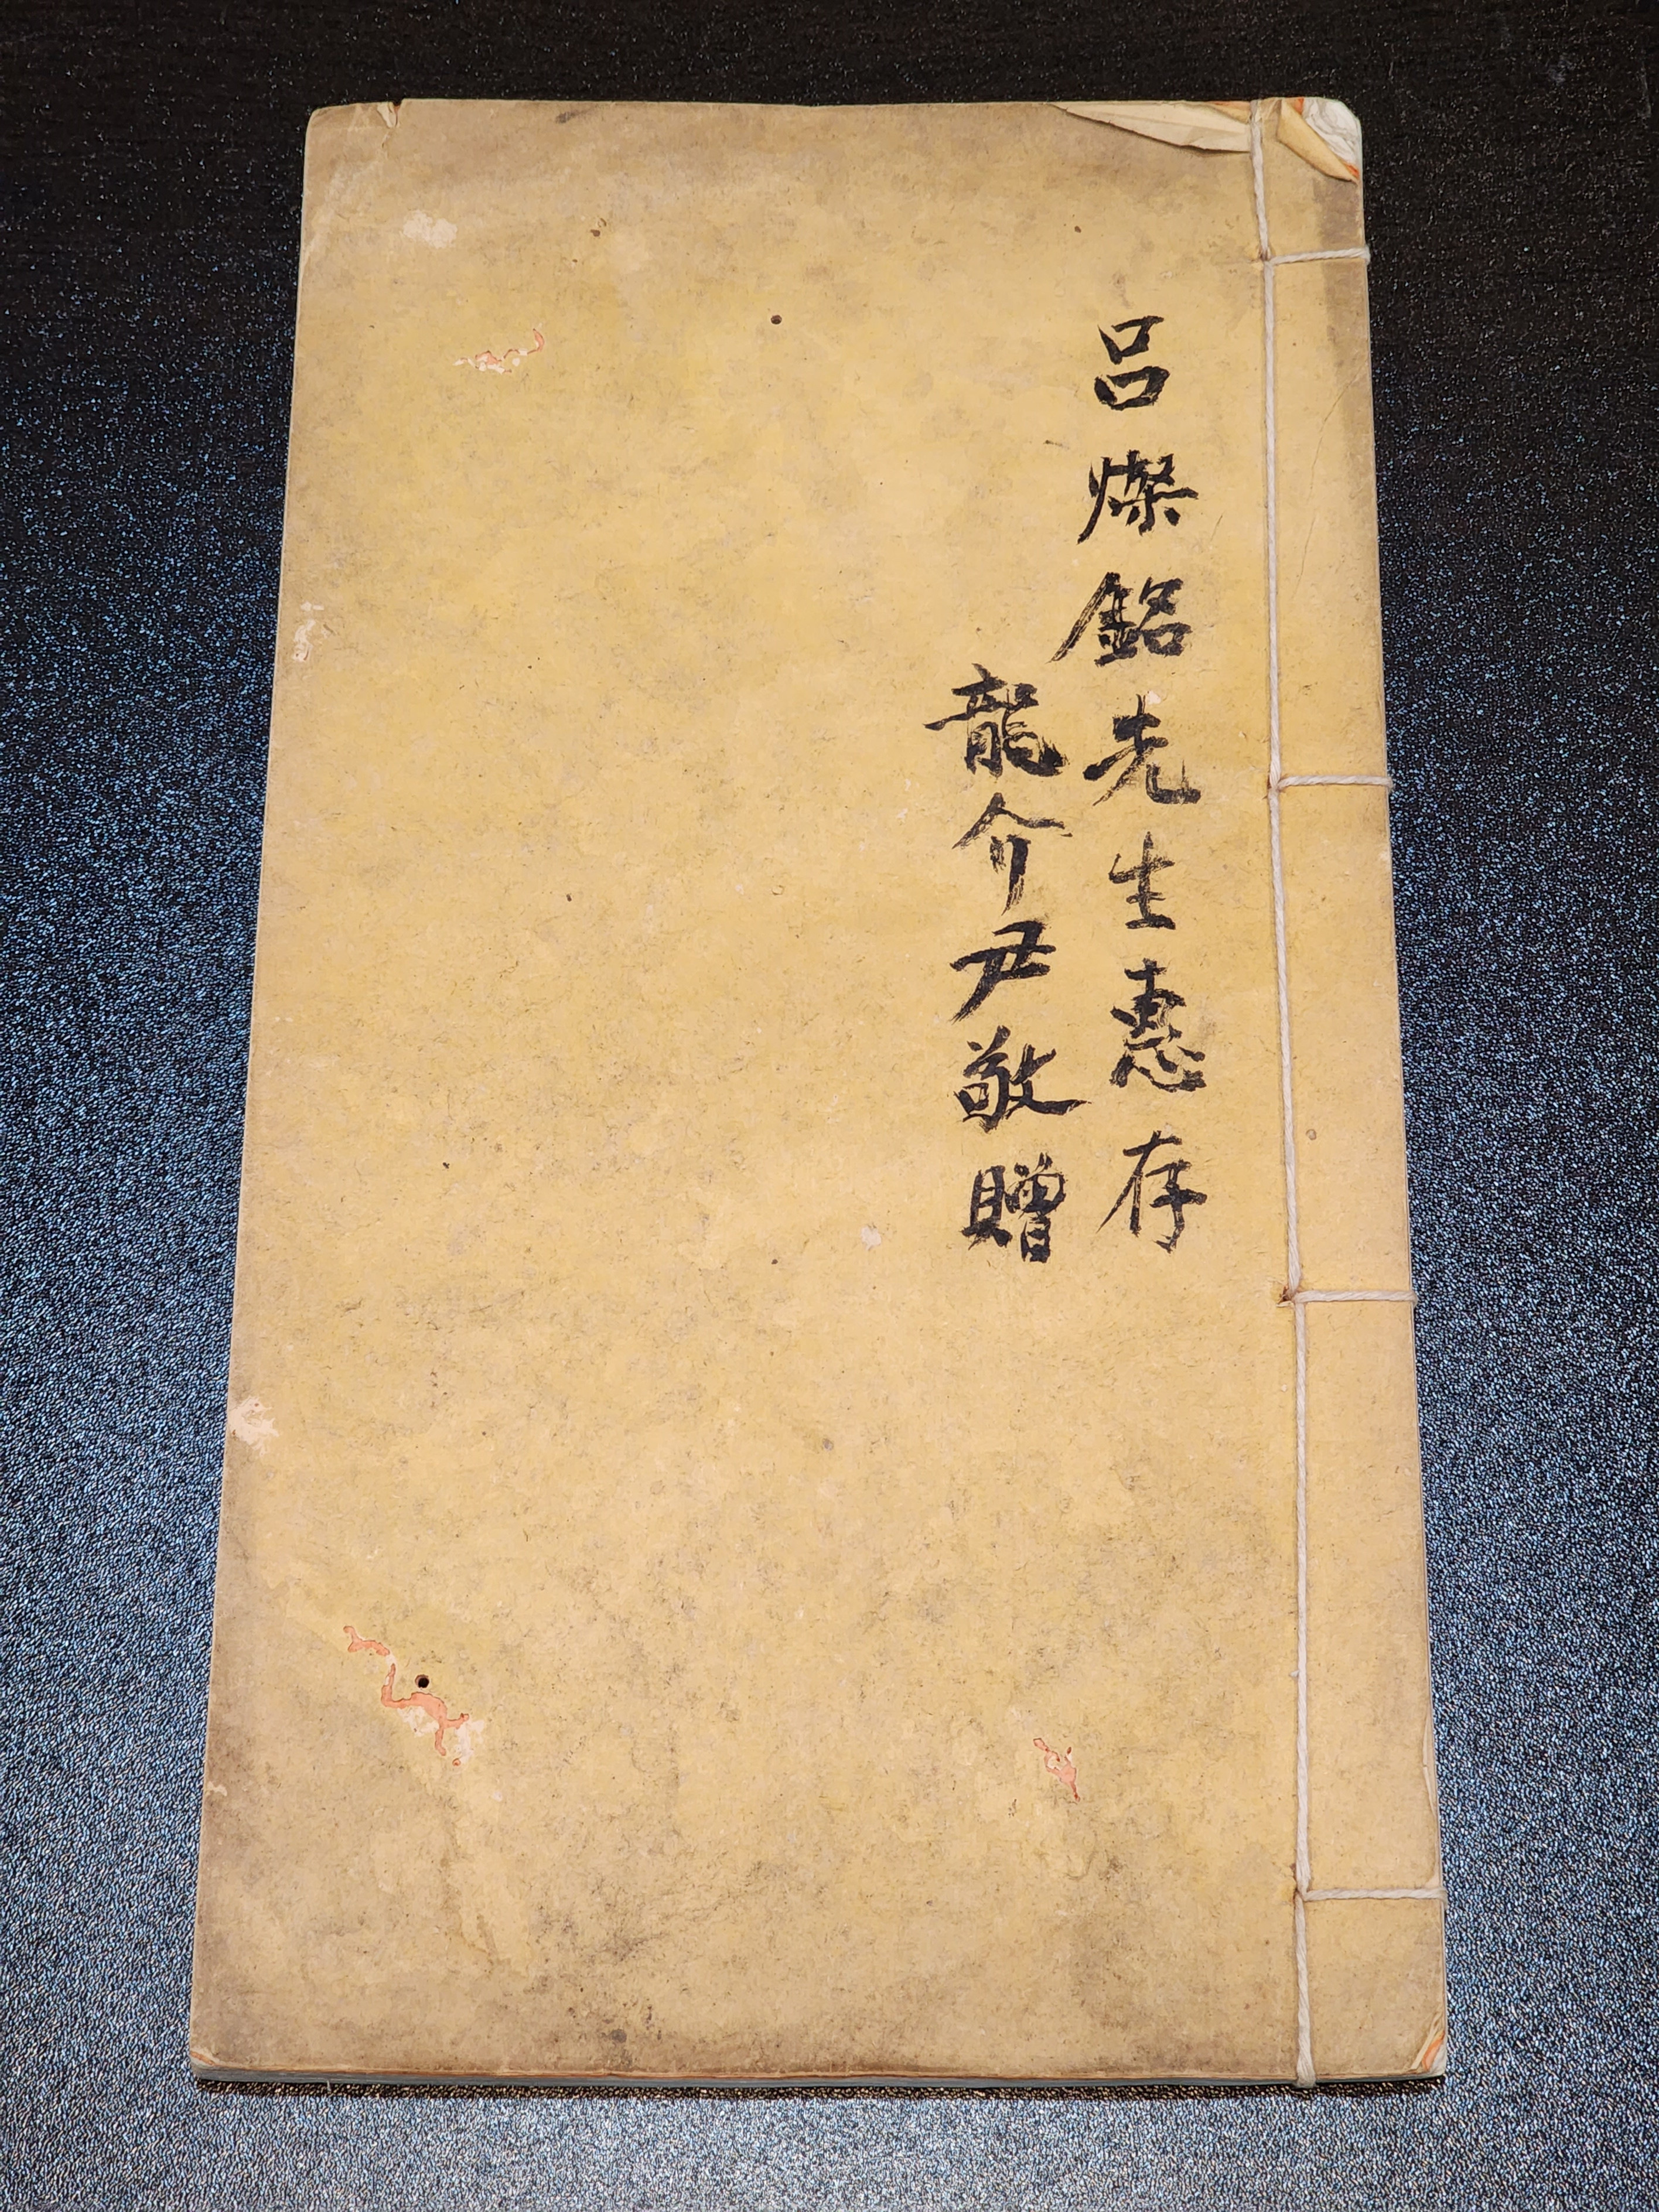 呂燦銘先生惠存
龍介尹敬贈